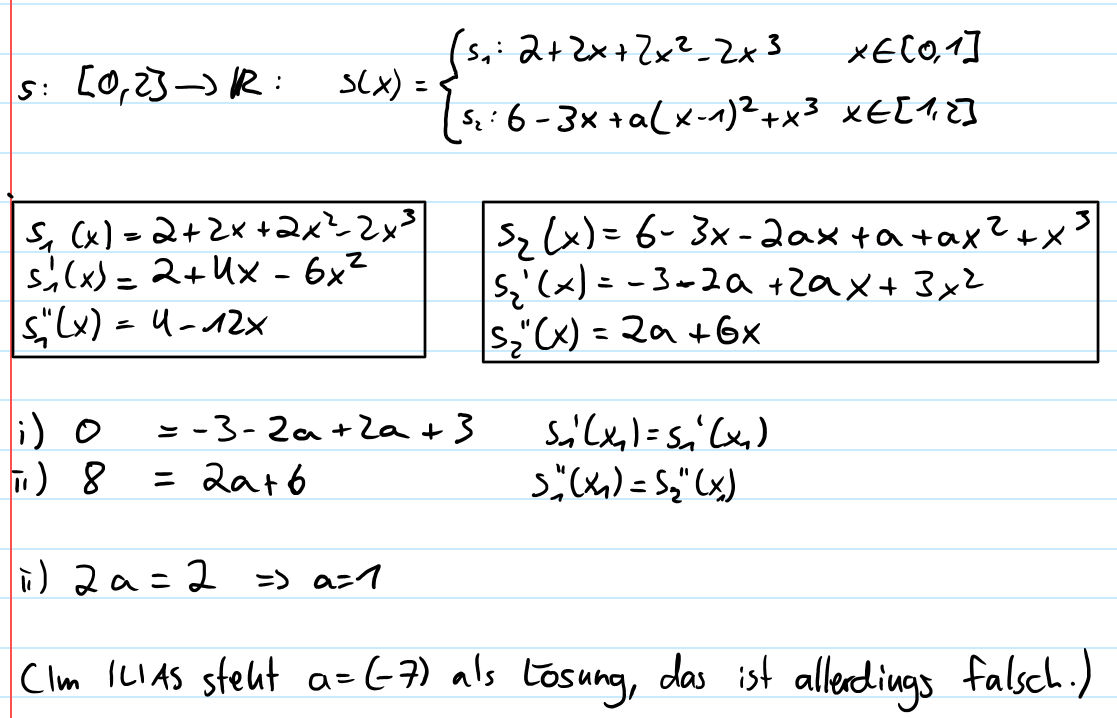 s: [0,2] → ℝ : s(x) = { s₁: 2+2x+2x²-2x³ x∈[0,1]
s₂: 6-3x+a(x-1)²+x³ x∈[1,2]
s₁(x) = 2+2x+2x²-2x³
s₁'(x) = 2+4x-6x²
s₁"(x) = 4-12x
s₂(x) = 6-3x-2ax+a+ax²+x³
s₂'(x) = -3-2a+2ax+3x²
s₂"(x) = 2a+6x
i) 0 = -3-2a+2a+3 s₁'(x₁)=s₁'(x₁)
ii) 8 = 2a+6 s₁"(x₁)=s₂"(x₁)
ii) 2a=2 => a=1
(Im ILIAS steht a=(-7) als Lösung, das ist allerdings falsch.)